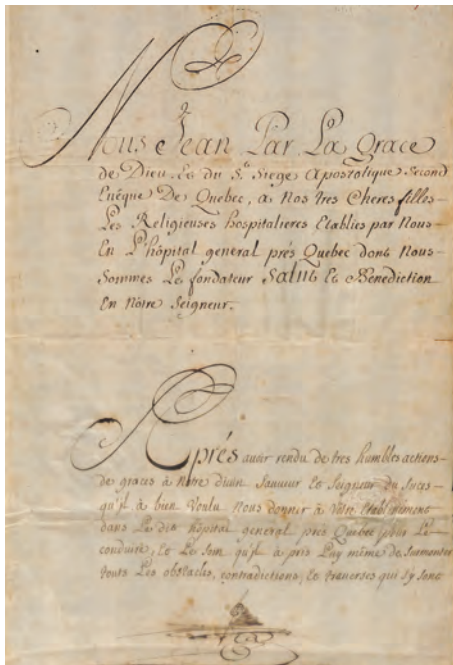 Nous Jean Par La Grace
de Dieu Et du St. Siege Apostolique Second
Evêque De Quebec, a Nos tres Cheres filles
Les Religieuses hospitalieres Etablies par Nous
En L'hôpital general prés Quebec dont Nous
Sommes Le fondateur Salut Et Benediction
En Nôtre Seigneur.
Aprés avoir rendu de tres humbles actions
de graces à Nôtre divin Sauveur Et Seigneur du Succes
qu'il à bien Voulu Nous donner à Vôtre Etablissement
dans Le dit hôpital general prés Quebec pour Le
conduire, Et Le Soin qu'il à pris Luy même de Surmonter
touts Les obstacles, contradictions, Et traverses qui s'y sont